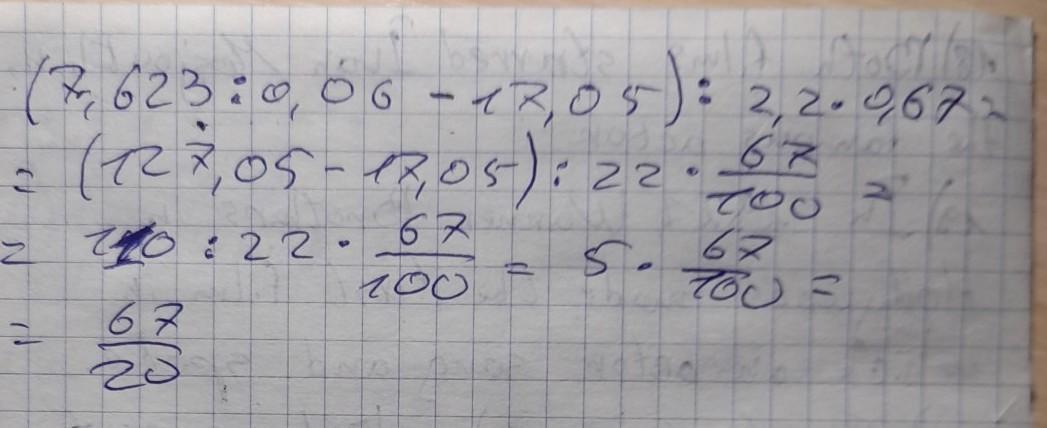 (7,623:0,06 - 17,05): 2,2·0,67=
= (127,05 - 17,05): 22 · 67/100 =
= 110 : 22 · 67/100 = 5 · 67/100 =
= 67/20